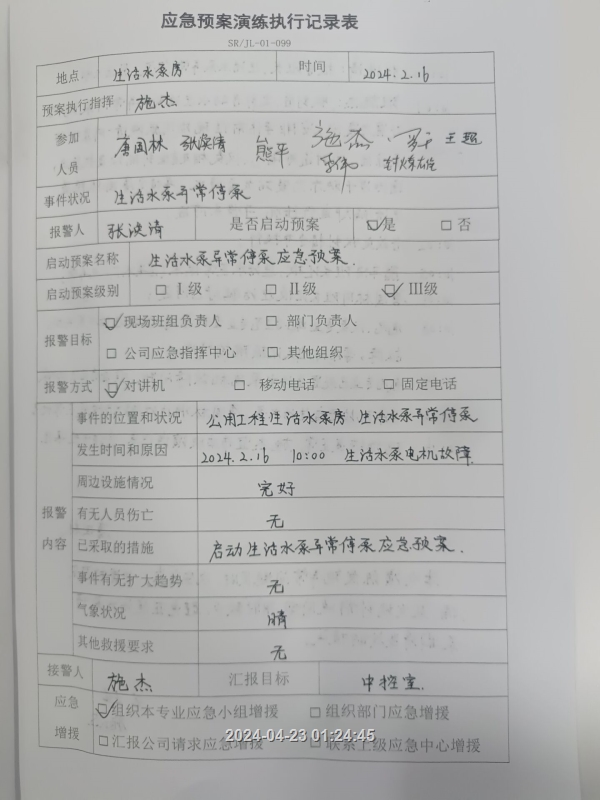 应急预案演练执行记录表
SR/JL-01-099
地点 生活水泵房 时间 2024.2.16
预案执行指挥 施杰
参加人员 唐国林 张滨清 熊平 施杰 王超
李伟
事件状况 生活水泵异常停泵
报警人 张滨清 是否启动预案 ☑是 □否
启动预案名称 生活水泵异常停泵应急预案.
启动预案级别 □Ⅰ级 □Ⅱ级 ☑Ⅲ级
报警目标 ☑现场班组负责人 □部门负责人
□公司应急指挥中心 □其他组织
报警方式 ☑对讲机 □移动电话 □固定电话
报警内容
事件的位置和状况 公用工程生活水泵房 生活水泵异常停泵
发生时间和原因 2024.2.16 10:00 生活水泵电机故障.
周边设施情况 完好
有无人员伤亡 无
已采取的措施 启动生活水泵异常停泵应急预案.
事件有无扩大趋势 无
气象状况 晴
其他救援要求 无
接警人 施杰 汇报目标 中控室.
应急增援 ☑组织本专业应急小组增援 □组织部门应急增援
□汇报公司请求应急增援 □联系上级应急中心增援
2024-04-23 01:24:45